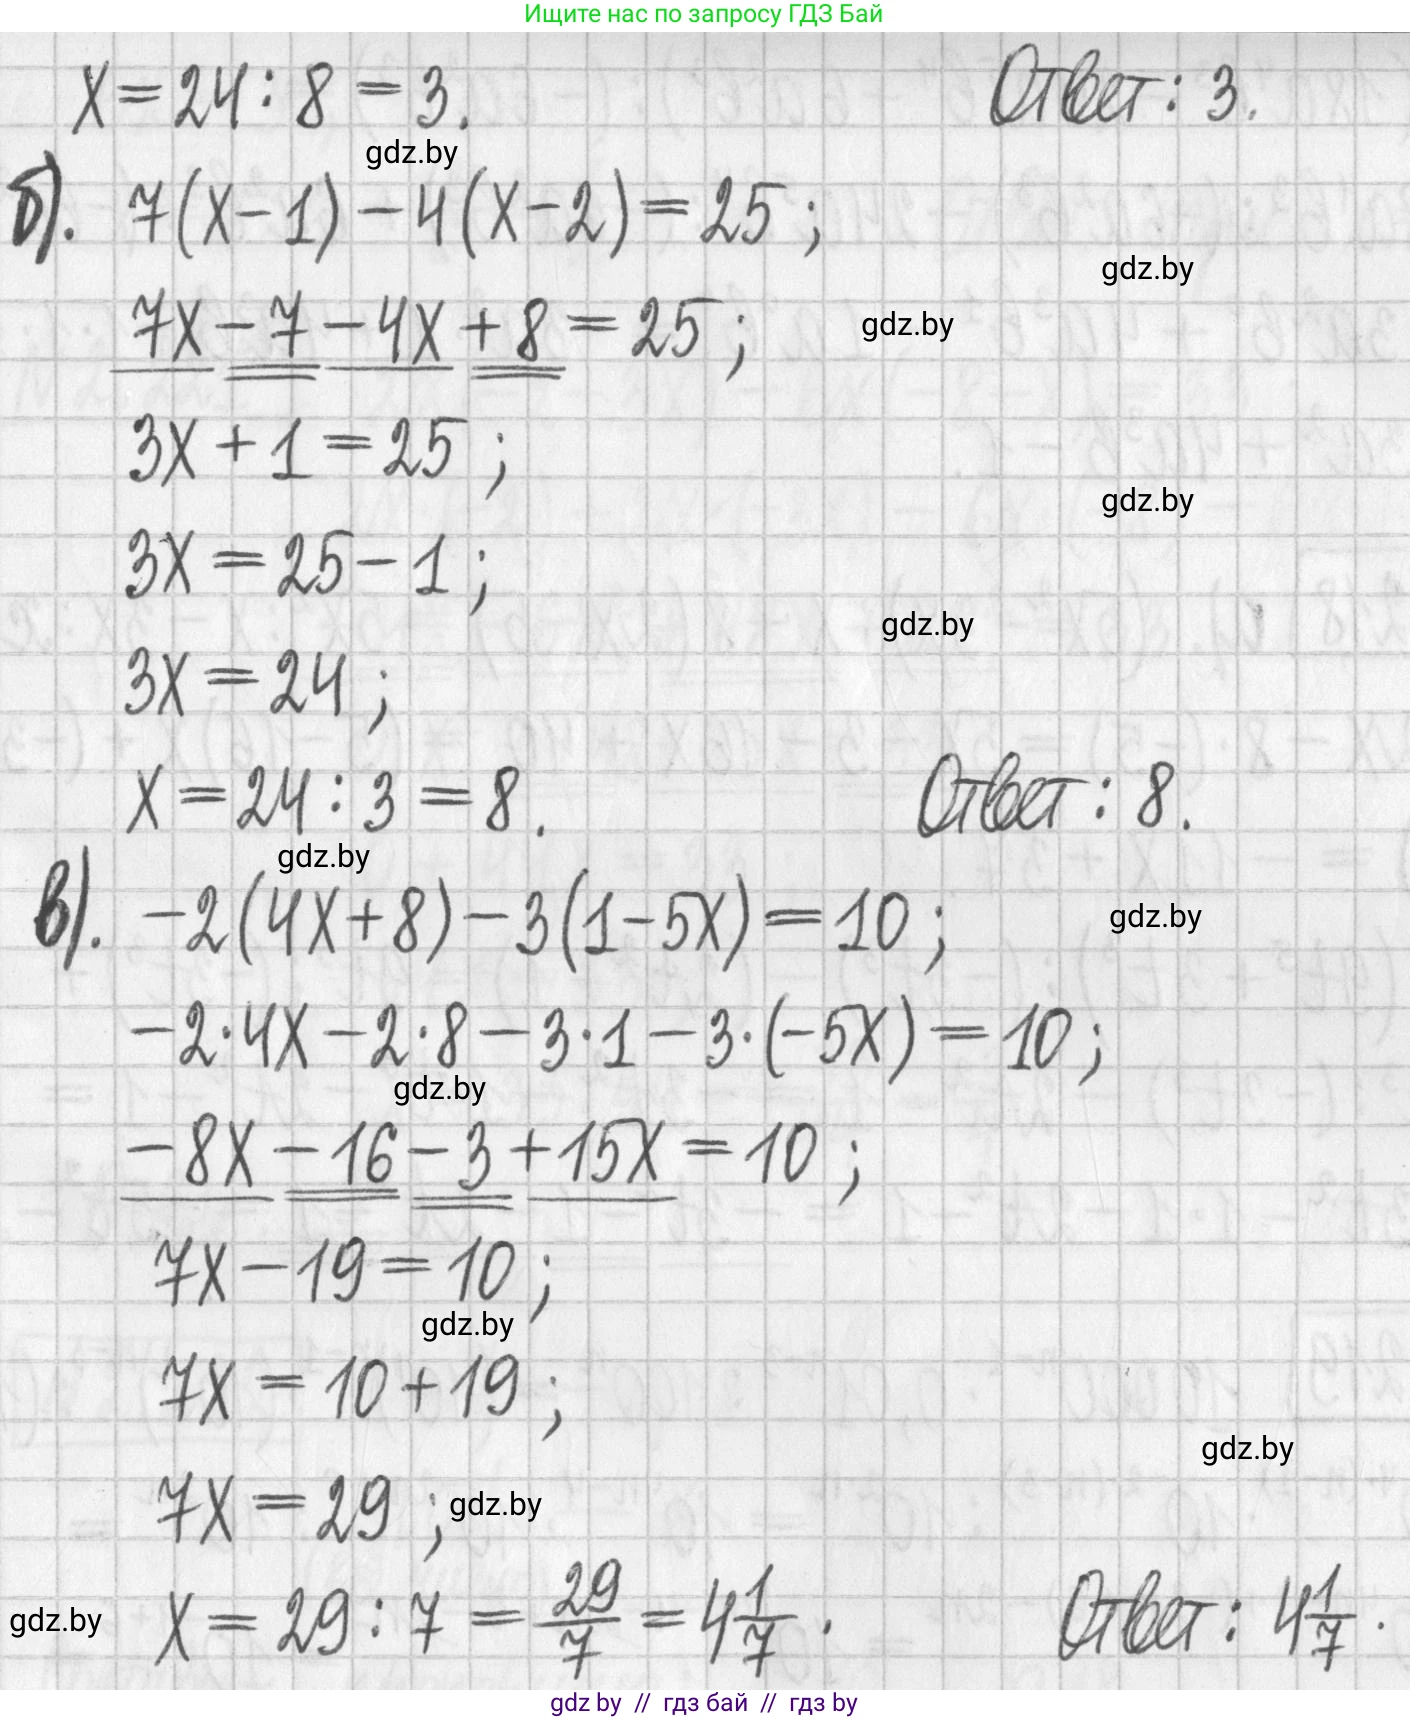 Ищите нас по запросу ГДЗ Бай
x = 24 : 8 = 3. Ответ: 3.
gdz.by
б). 7(x − 1) − 4(x − 2) = 25;
gdz.by
7x − 7 − 4x + 8 = 25; gdz.by
3x + 1 = 25;
gdz.by
3x = 25 − 1;
gdz.by
3x = 24;
x = 24 : 3 = 8. Ответ: 8.
gdz.by
в). −2(4x + 8) − 3(1 − 5x) = 10; gdz.by
−2·4x − 2·8 − 3·1 − 3·(−5x) = 10;
gdz.by
−8x − 16 − 3 + 15x = 10;
7x − 19 = 10;
gdz.by
7x = 10 + 19;
gdz.by
7x = 29; gdz.by
gdz.by x = 29 : 7 = 29/7 = 4 1/7. Ответ: 4 1/7.
gdz by // гдз бай // гдз by